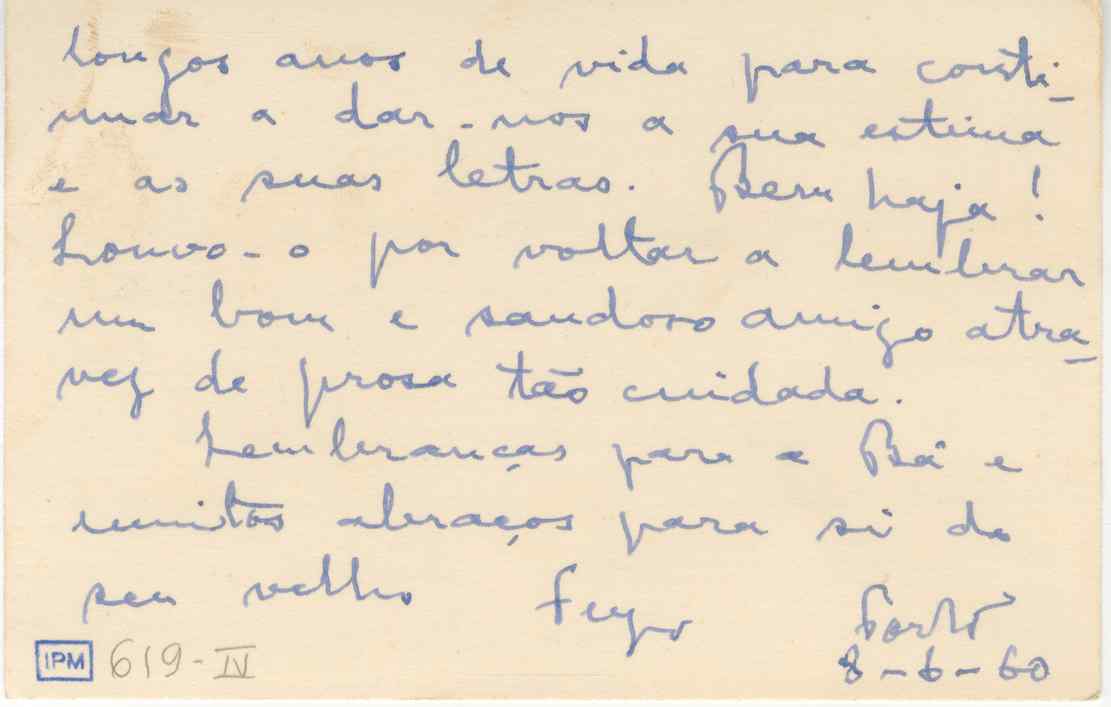 longos anos de vida para conti-
nuar a dar-nos a sua estima
e as suas letras. Bem haja!
Louvo-o por voltar a lembrar
um bom e saudoso amigo atra-
vez de prosa tão cuidada.
Lembranças para a Bá e
muitos abraços para si do
seu velho
Porto
8-6-60
IPM 619-IV